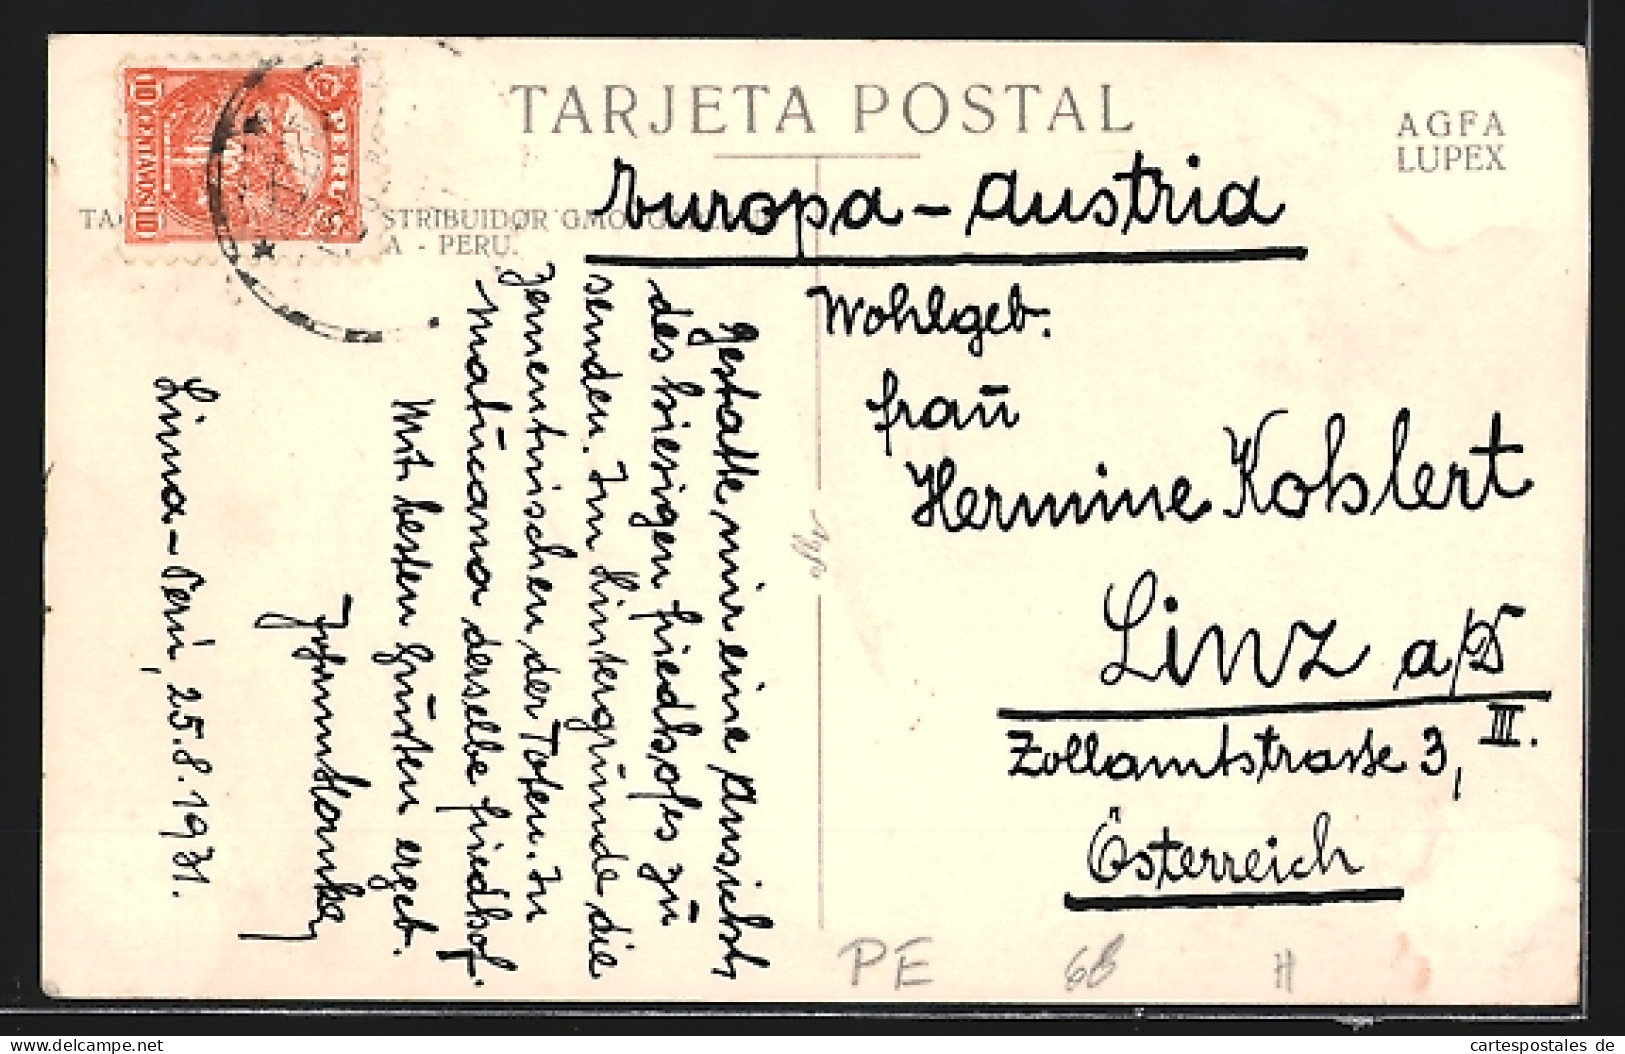 TARJETA POSTAL
AGFA
LUPEX
PERU
10 CENTAVOS 10
STRIBUIDOR GMO.
A - PERU.
Europa - Austria
Wohlgeb.
Frau
Hermine Kohlert
Linz a/D
Zollamtstrasse 3, III.
Österreich
Gestatte mir eine Ansicht
des hiesigen Friedhofes zu
senden. Im Hintergrunde die
der Toten. In
Matucana derselbe Friedhof.
Mit besten Grüßen ergeb.
Lima - Perú, 25.8.1931.
PE
68
H
cartespostales de